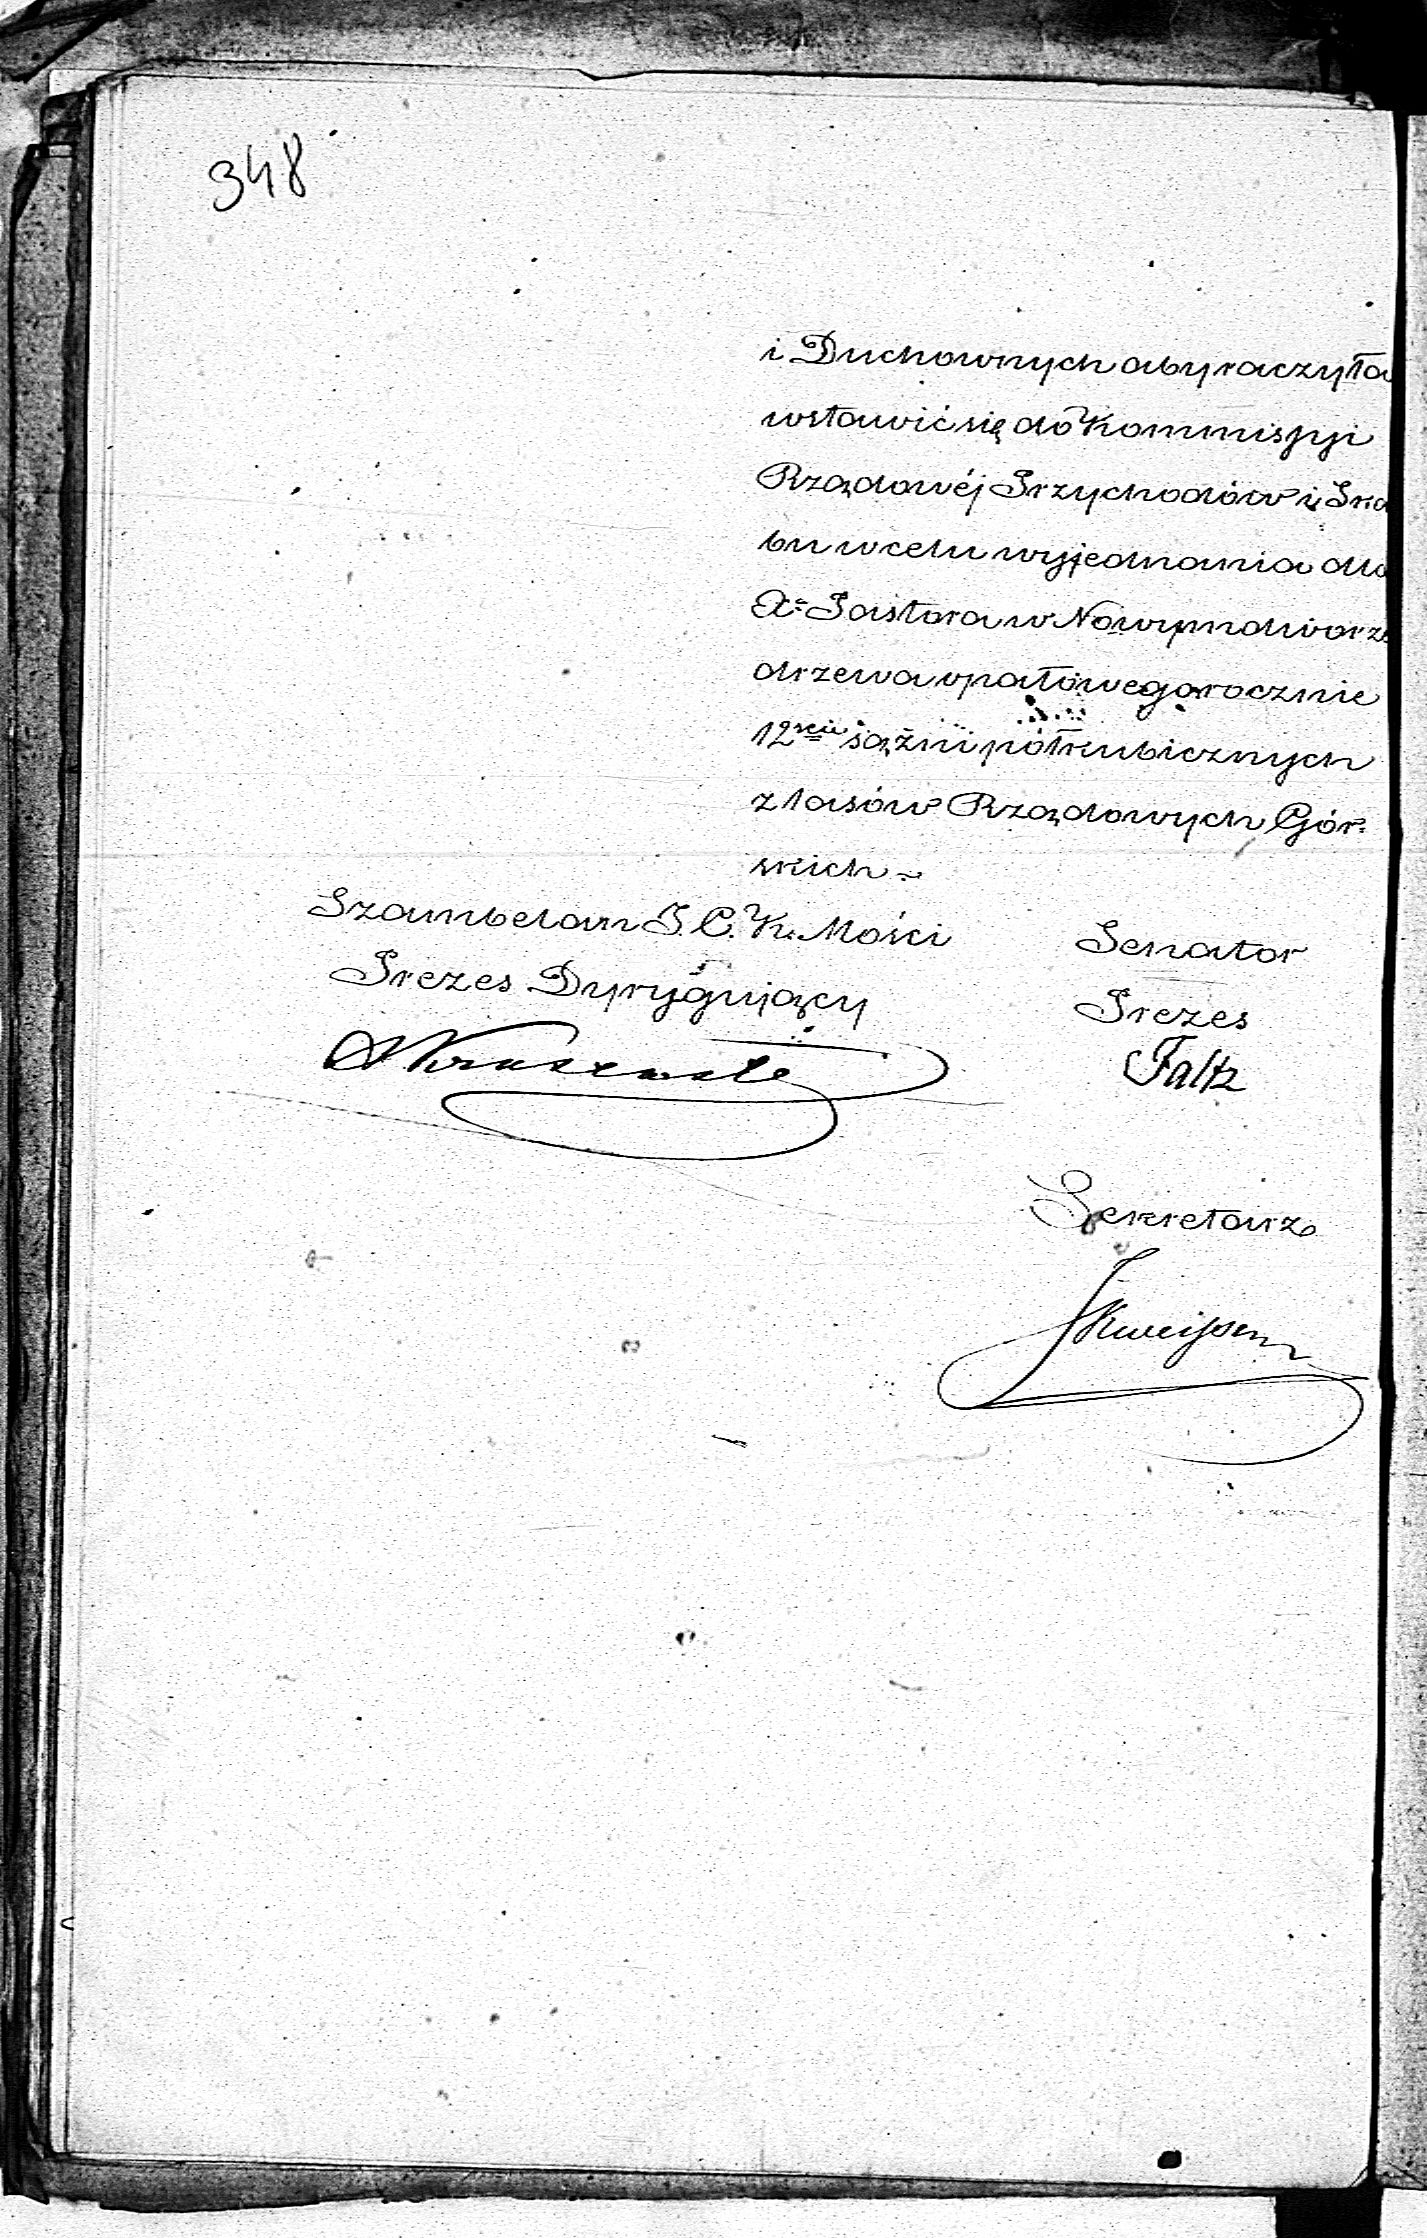 348
i Duchownych aby raczyła
wstawić się do Kommissyi
Rządowéj Przychodów i Ska
bu w celu wyjednania dla
Xa Pastora w Nowymdworze
drzewa opałowego rocznie
12scie sążni półkubicznych
z lasów Rządowych Gór-
skich.
Szambelan J. C. K. Mości
Prezes Dyrygujący
Senator
Prezes
Faltz
Sekretarz